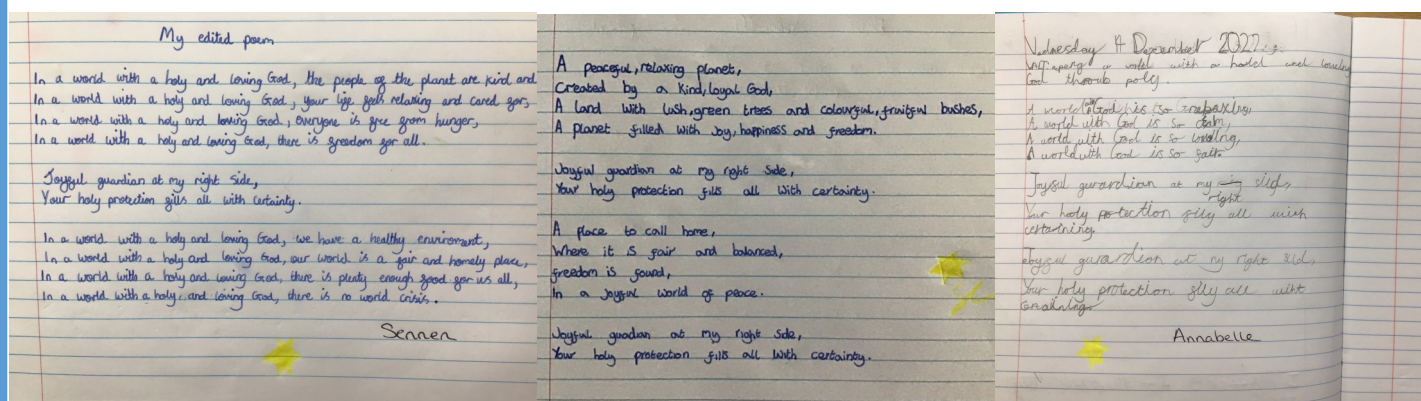 My edited poem
In a world with a holy and loving God, the people of the planet are kind and
In a world with a holy and loving God, your life feels relaxing and cared for,
In a world with a holy and loving God, everyone is free from hunger,
In a world with a holy and loving God, there is freedom for all.
Joyful guardian at my right side,
Your holy protection fills all with certainty.
In a world with a holy and loving God, we have a healthy enviroment,
In a world with a holy and loving God, our world is a fair and homely place,
In a world with a holy and loving God, there is plenty enough food for us all,
In a world with a holy and loving God, there is no world crisis.
Sennen
A peaceful, relaxing planet,
Created by a kind, loyal God,
A land with lush, green trees and colourful, fruitful bushes,
A planet filled with joy, happiness and freedom.
Joyful guardian at my right side,
Your holy protection fills all with certainty.
A place to call home,
Where it is fair and balanced,
freedom is found,
In a joyful world of peace.
Joyful guadian at my right side,
Your holy protection fills all with certainty.
December 2022
a world with a and
God
A world God is so
A world with God is so
A world with God is so
A world with God is so
Joyful gurardian at my right sild,
Your holy all with
gurardian at my right sild,
Your holy all
Annabelle